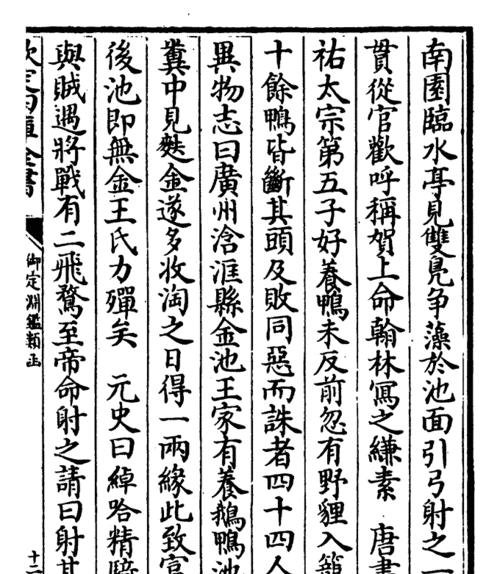 南園臨水亭見雙鳧争藻於池面引弓射之一
貫從官歡呼稱賀上命翰林寫之縑素　唐書
祐太宗第五子好養鴨未反前忽有野貍入籠
十餘鴨皆斷其頭及敗同惡而誅者四十四人
異物志曰廣州浛洭縣金池王家有養鵝鴨池
糞中見麩金遂多收淘之日得一兩緣此致富
後池即無金王氏力殫矣　元史曰綽哈精騎
與賊遇將戰有二飛鶩至帝命射之請曰射其
欽定四庫全書
御定淵鑑類函
十二